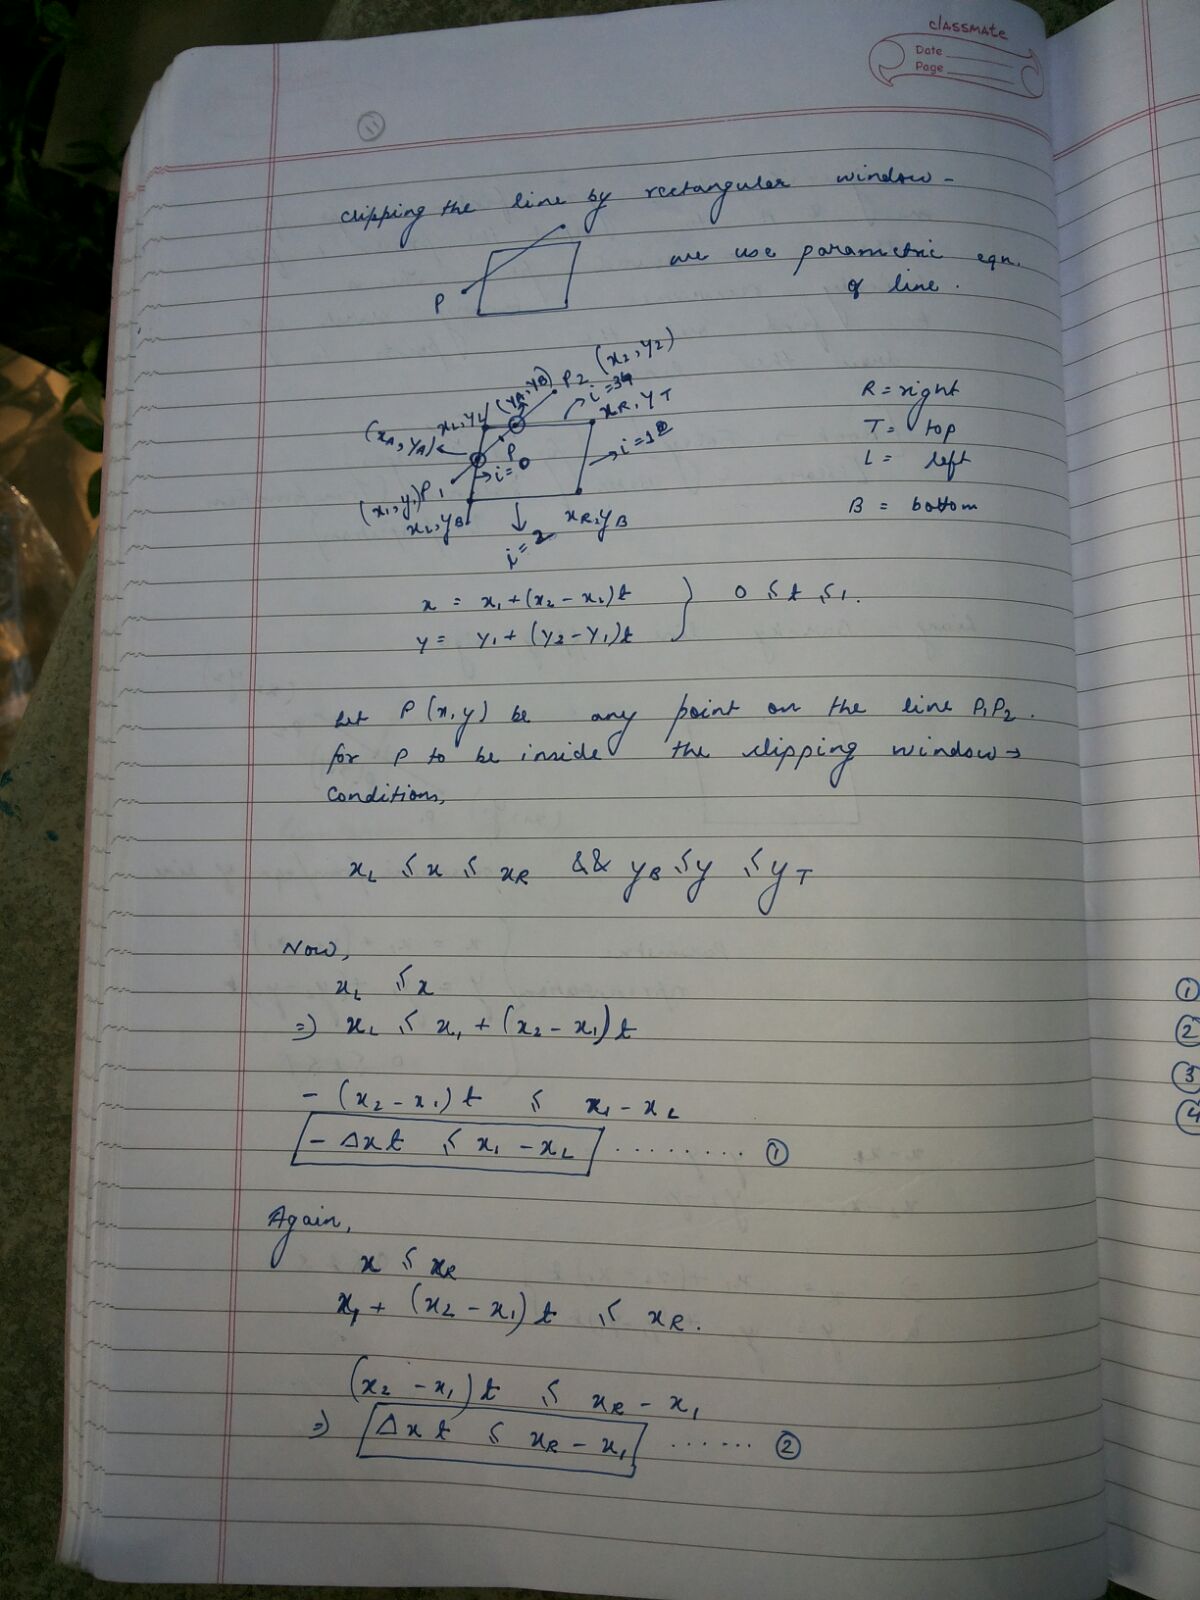 classmate
Date
Page
11
clipping the line by rectangular window -
P
we use parametric eqn.
of line.
(x2, y2)
P2
(yA, yB)
i = 34
xL, yL
xR, yT
(xA, yA)
P
i = 0
i = 1
(x1, y1) P1
xL, yB
xR, yB
i = 2
R = right
T = top
L = left
B = bottom
x = x1 + (x2 - x2)t
y = y1 + (y2 - y1)t
0 ≤ t ≤ 1.
Let P(x,y) be any point on the line P1P2.
for P to be inside the clipping window →
conditions,
xL ≤ x ≤ xR && yB ≤ y ≤ yT
Now,
xL ≤ x
⇒ xL ≤ x1 + (x2 - x1)t
- (x2 - x1)t ≤ x1 - xL
- Δx t ≤ x1 - xL ......... ①
Again,
x ≤ xR
x1 + (x2 - x1)t ≤ xR.
(x2 - x1)t ≤ xR - x1
⇒ Δx t ≤ xR - x1 ...... ②
①
②
③
④